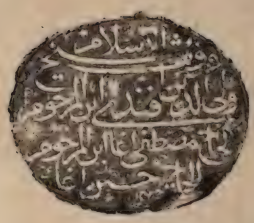 وقف شيخ الاسلام
ولي الدين افندى ابن المرحوم
الحاج مصطفى اغا ابن المرحوم
الحاج حسين اغا